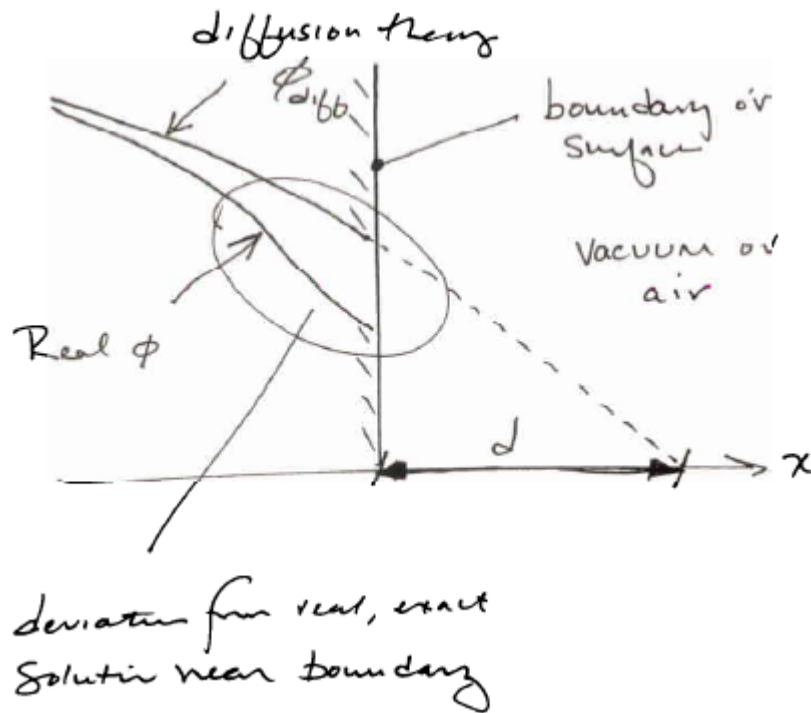 diffusion theory
ϕdiff
boundary or
surface
Vacuum or
air
Real ϕ
d
x
deviation from real, exact
Solution near boundary